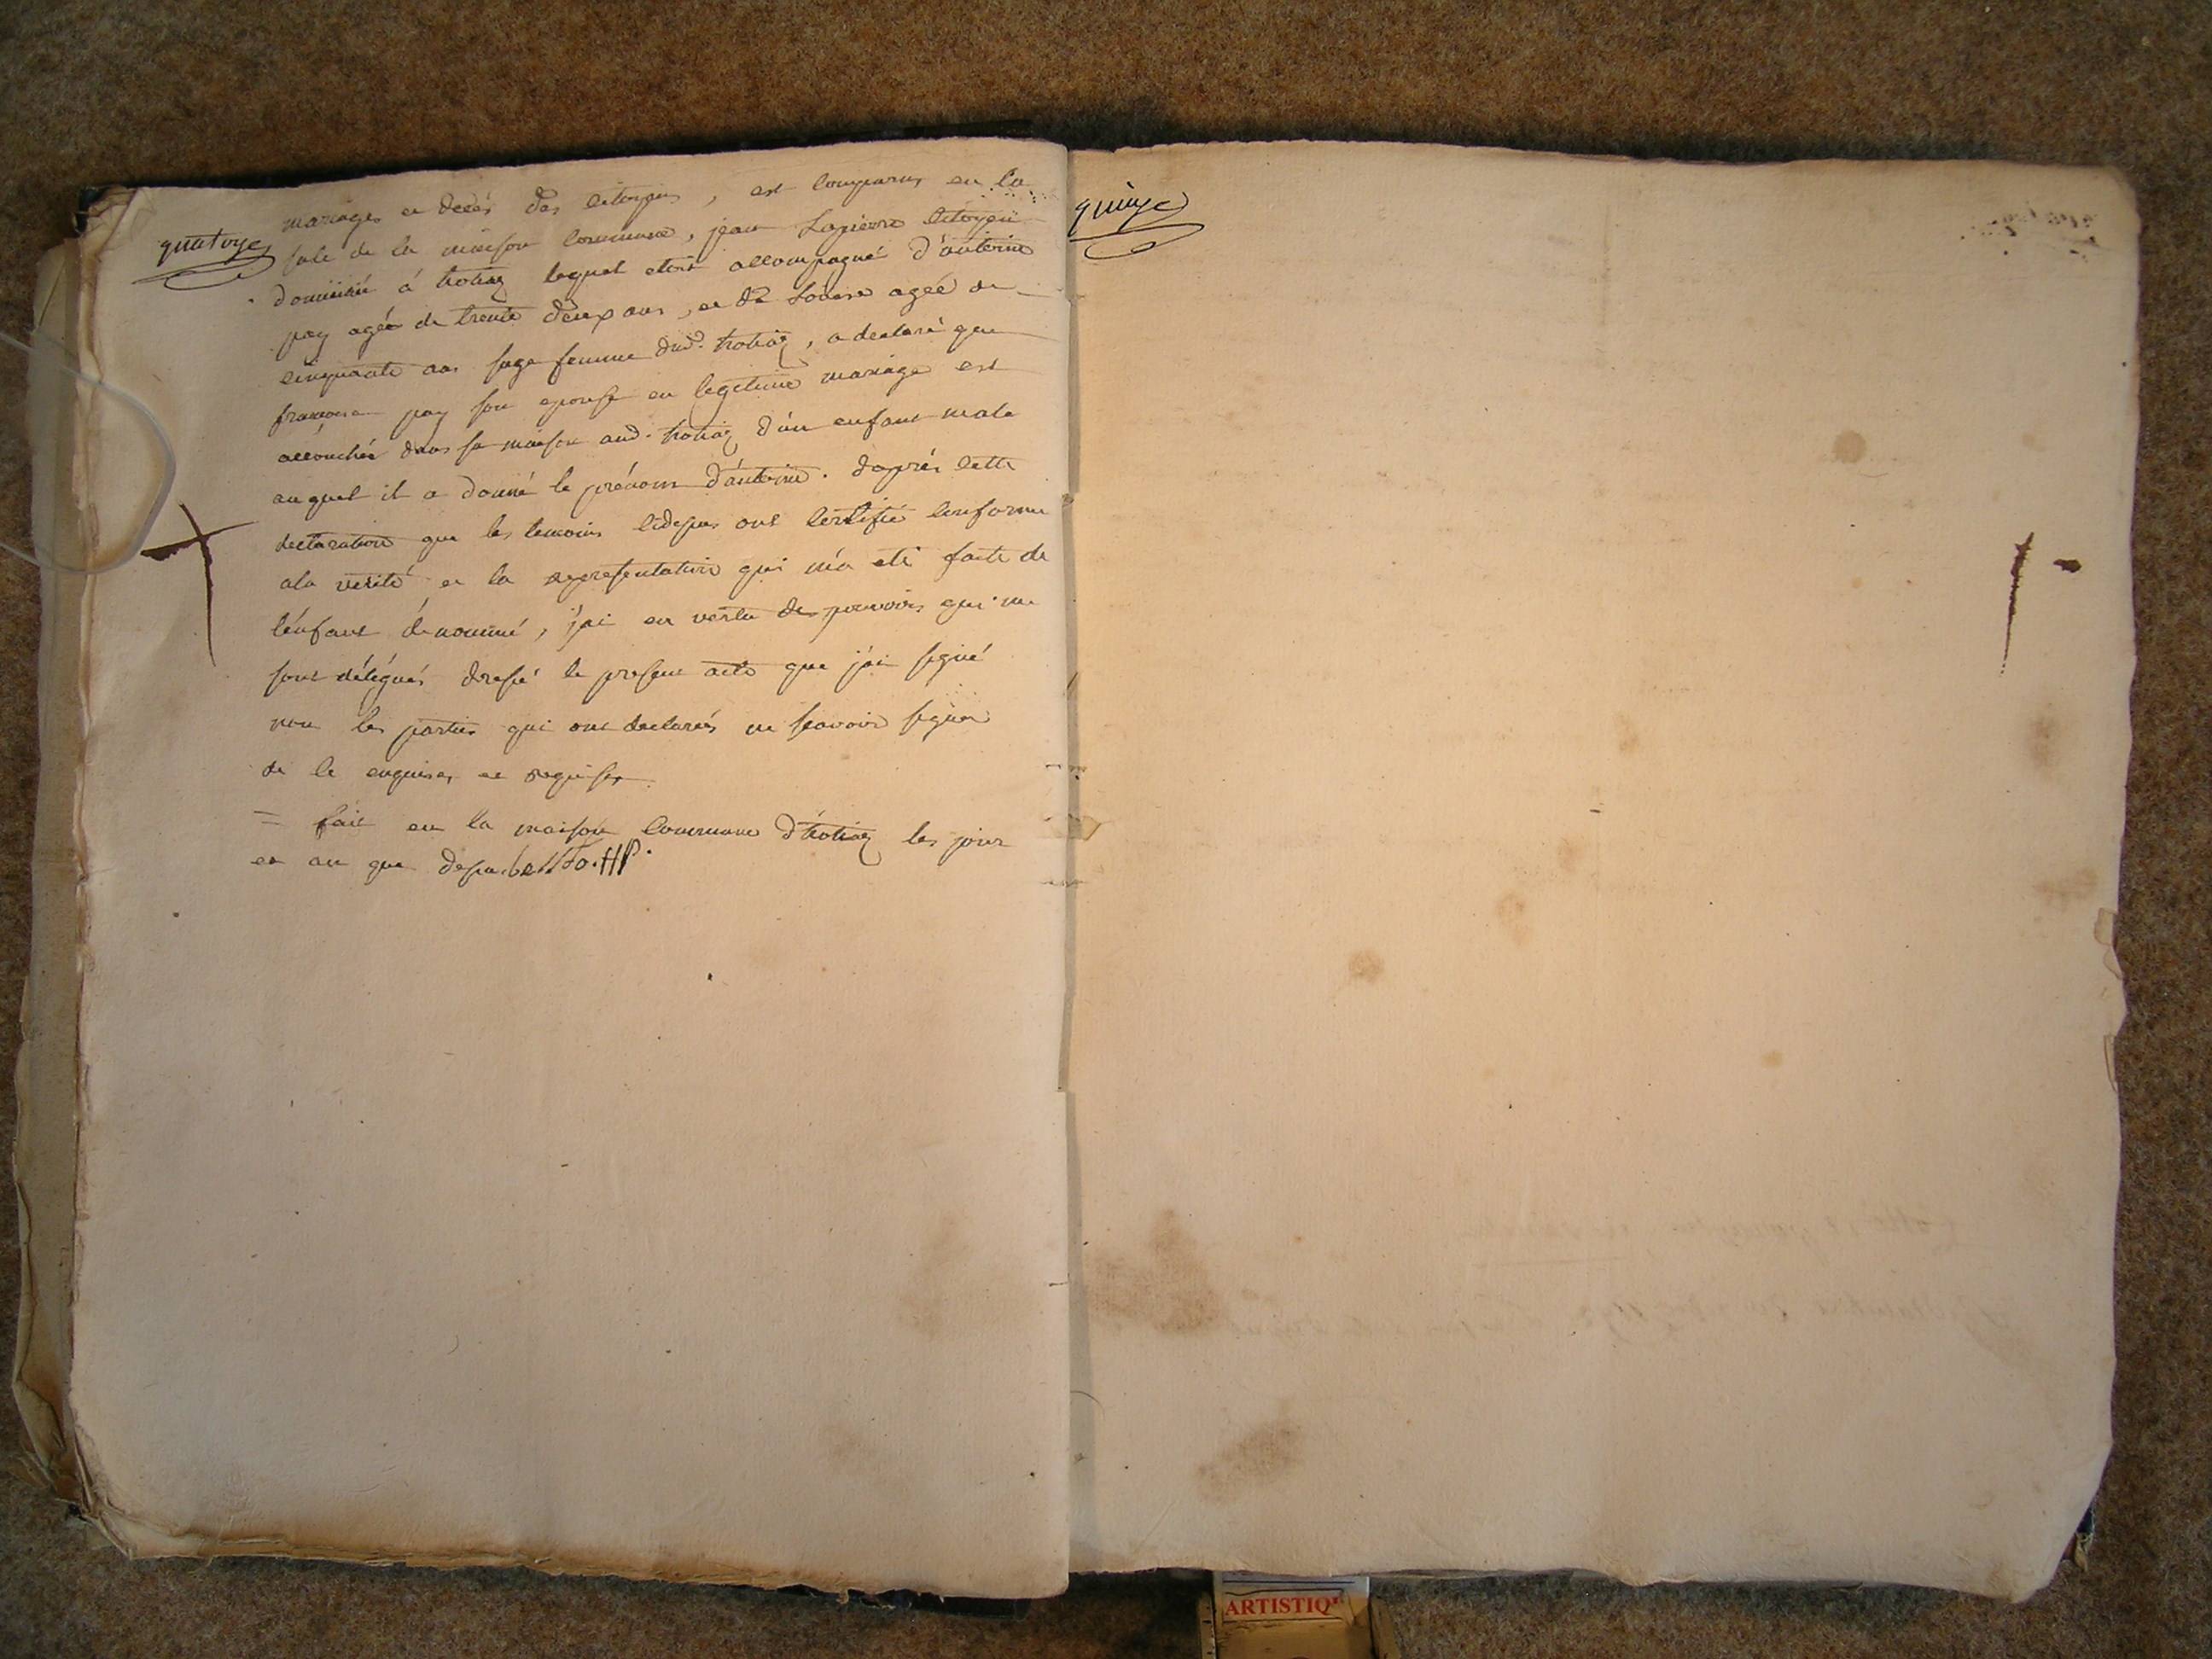 quatorze
mariages et decès des citoyens, est comparus en la
sale de la maison commune, jean Lapierre citoyen
domicilié à trotiaz lequel etoit accompagné d'antoine
pay agés de trente deux ans, et de Loüise agée de
cinquante ans sage femme dud. trotiaz, a declaré que
francoise pay son epouse en legitime mariage est
accouchée dans sa maison aud. trotiaz d'un enfant male
auquel il a donné le prénom d'antoine. daprès cette
declaration que les temoins cidessus ont certifié conforme
ala verité et la representation qui m'a eté faite de
l'enfant dénommé, j'ai en vertu des pouvoirs qui me
sont délégués dressé le present acte que j'ai signé
non les parties qui ont declarés ne scavoir signer
de le enquises et requises
= fait en la maison commune d'trotiaz les jour
et an que dessus
quinze
ARTISTIQ